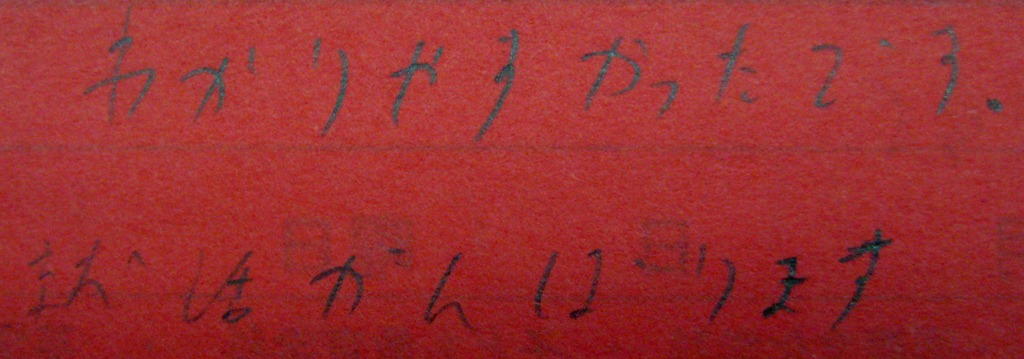 わかりやすかったです.
就活がんばります